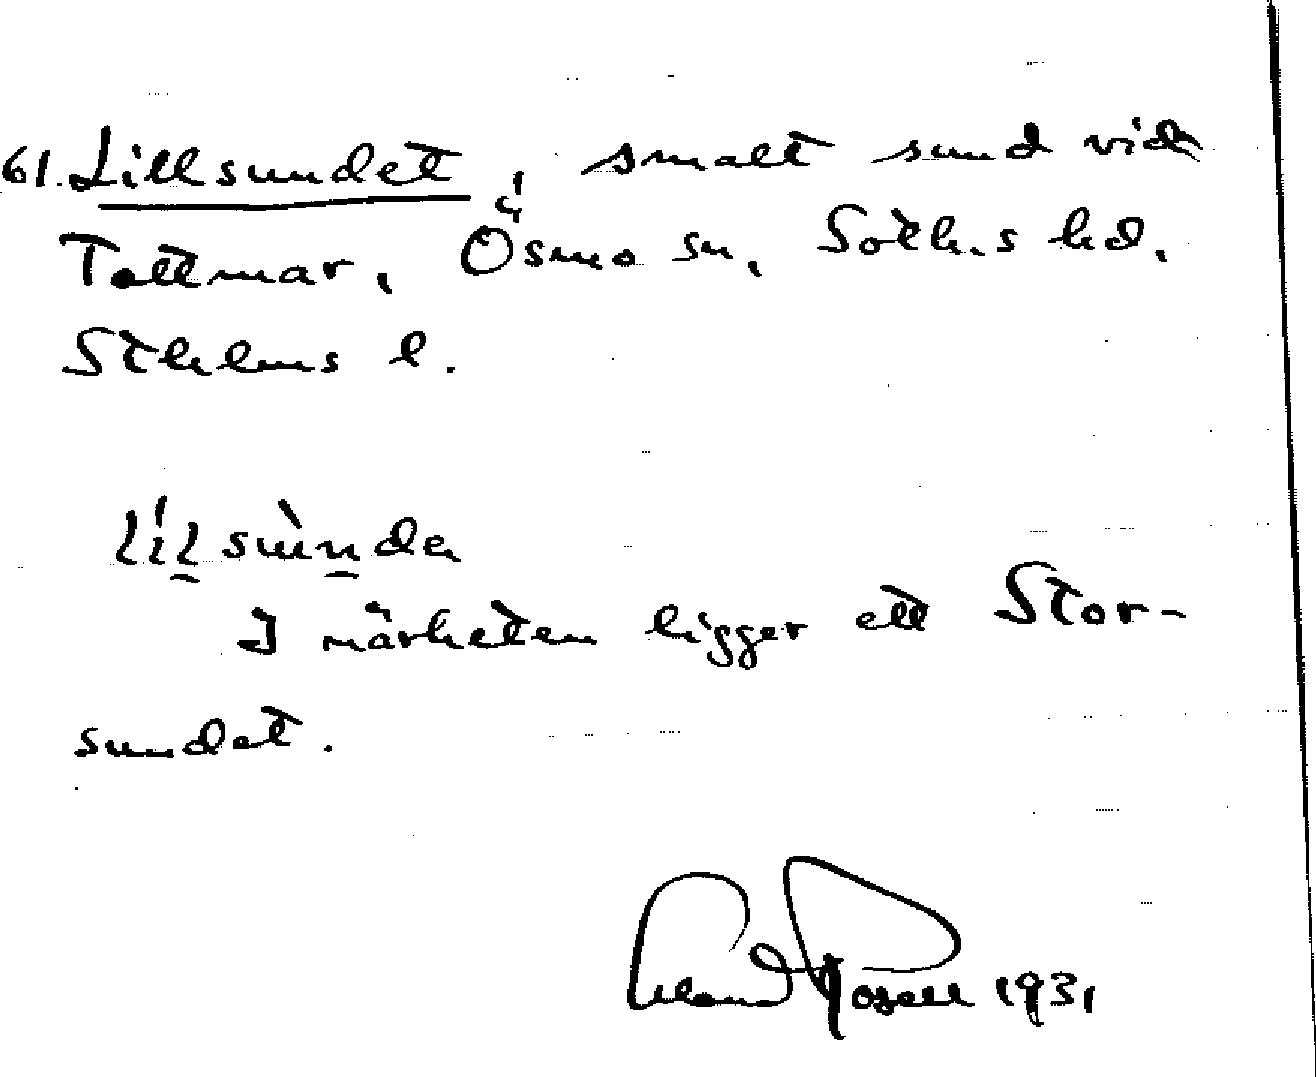 61. Lillsundet, smalt sund vid
Tottnar, Ösmo sn, Soth.s hd.
Sthlms l.
lílsùnde
I närheten ligger ett Stor-
sundet.
Erland Rosell 1931